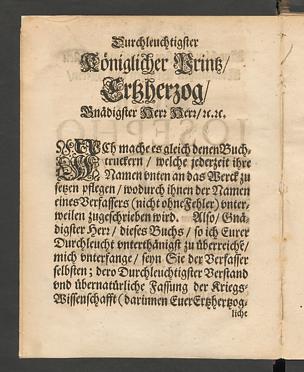 Durchleuchtigster
Königlicher Printz/
Ertzherzog/
Gnädigster Herr Herr/ ꝛc.ꝛc.
ICh mache es gleich denen Buch-
truckern / welche jederzeit ihre
Namen vnten an das Werck zu
setzen pflegen / wodurch ihnen der Namen
eines Verfassers (nicht ohne Fehler) vnter-
weilen zugeschrieben wird. Also / Gnä-
digster Herr / dieses Buchs / so ich Eurer
Durchleucht vnterthänigst zu überreiche/
mich vnterfange / seyn Sie der Verfasser
selbsten; dero Durchleuchtigster Verstand
vnd übernatürliche Fassung der Kriegs-
Wissenschafft (darinnen Euer Ertzhertzog-
liche